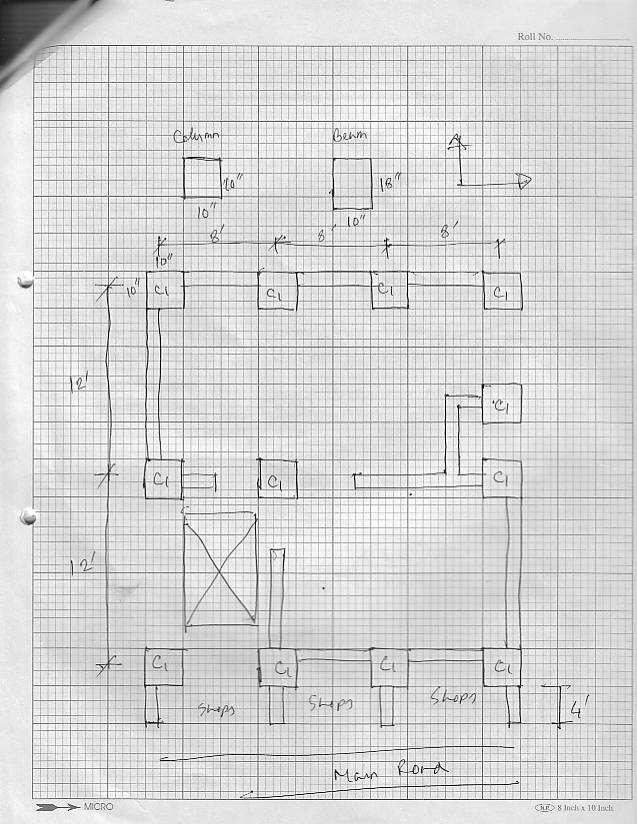 Roll No.
Column
Beam
10"
10"
18"
10"
8'
8'
8'
10"
10"
C1
C1
C1
C1
12'
C1
C1
C1
C1
12'
C1
C1
C1
C1
Shops
Shops
Shops
4'
Main Road
MICRO
8 Inch x 10 Inch